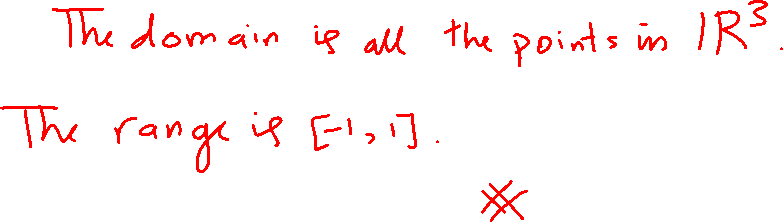 The domain is all the points in ℝ³.
The range is [-1, 1].